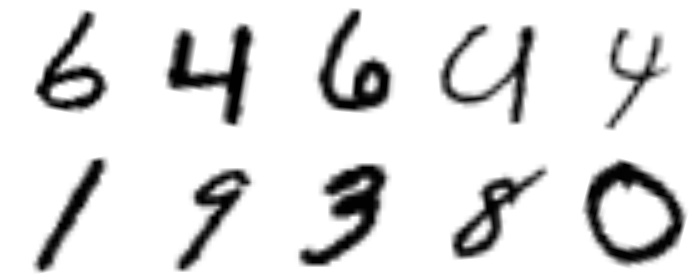 6 4 6 4 4
1 9 3 8 0